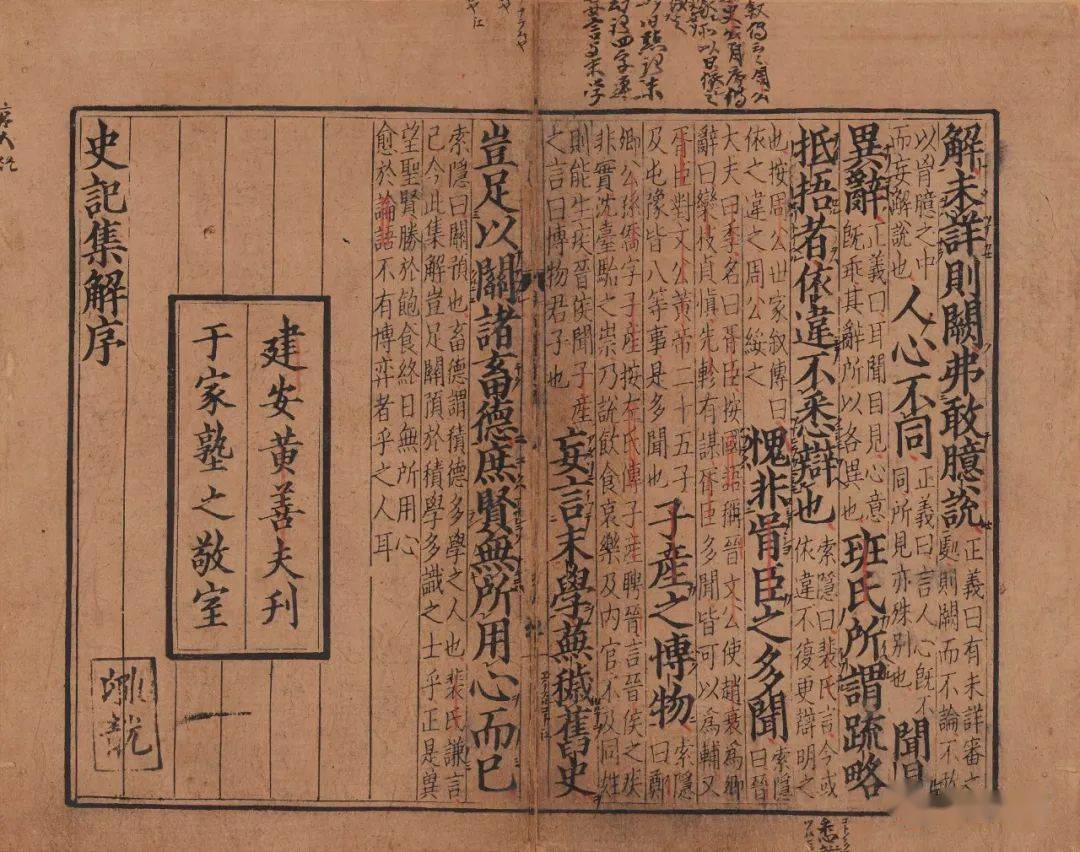 解未詳則闕弗敢臆說
正義曰有未詳審之
處則闕而不論不敢
以胷臆之中
而妄解說也
人心不同
正義曰言人心既不
同所見亦殊別也
聞見
異辭
正義曰耳聞目見心意
既乖其辭所以各異也
班氏所謂疏略
抵捂者依違不悉辯也
索隱曰裴氏言今或
依違不復更辯明之
也按周公世家叙傳曰
依之違之周公綏之
愧非胥臣之多聞
索隱
曰晉
大夫曰季名曰胥臣按國語稱晉文公使趙衰為卿
辭曰欒枝貞慎先軫有謀胥臣多聞皆可以為輔又
胥臣對文公黃帝二十五子
及屯豫皆八等事是多聞也
子產之博物
索隱
曰鄭
卿公孫僑字子產按左氏傳子產聘晉言晉侯之疾
非實沈臺駘之祟乃說飲食哀樂及內官不及同姓
則能生疾晉侯聞子產
之言曰博物君子也
妄言末學蕪穢舊史
豈足以關諸畜德庶賢無所用心而已
索隱曰關預也畜德謂積德多學之人也裴氏謙言
已今此集解豈足關預於積學多識之士乎正是兾
望聖賢勝於飽食終日無所用心
愈於論語不有博弈者乎之人耳
建安黃善夫刊
于家塾之敬室
史記集解序